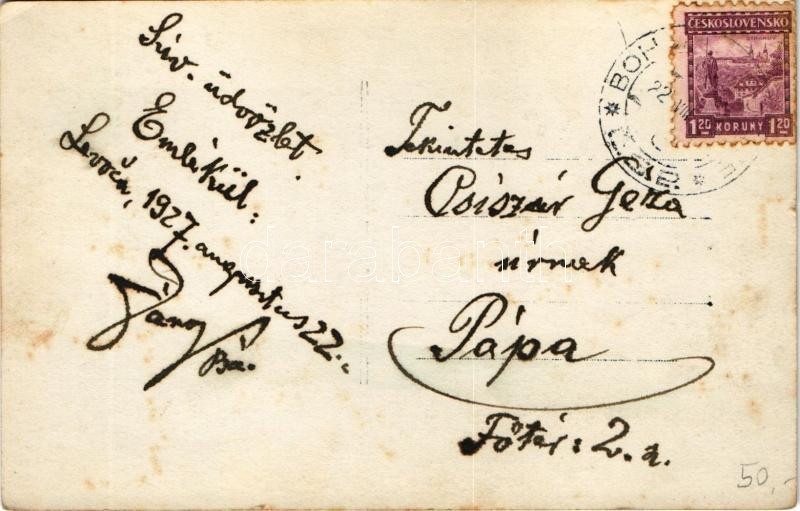 Szív. üdvözlet.
Emlékül:
Levoča, 1927. augusztus 22.
János
Ba.
Tekintetes
Csiszár Geza
úrnak
Pápa
Főtér: 2. a.
ČESKOSLOVENSKO
1 20 KORUNY 1 20
22 VIII
50,-
darabanth